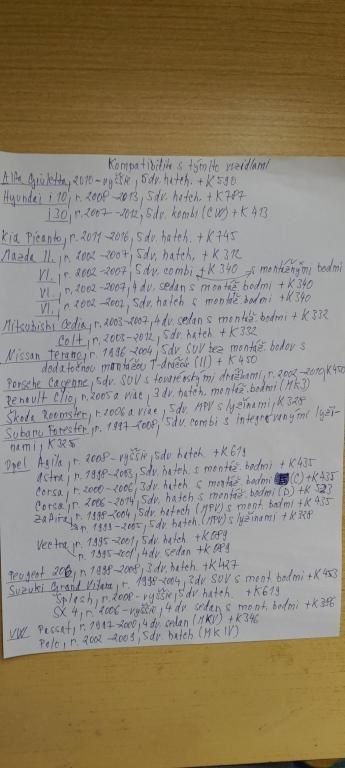 Kompatibilita s týmito vozidlami
Alfa Giulietta, 2010-vyššie, 5dv. hatch. + K590
Hyundai i10, r. 2008-2013, 5dv. hatch. + K787
i30, r. 2007-2012, 5dv. kombi (CW) + K413
Kia Picanto, r. 2011-2016, 5dv. hatch. + K745
Mazda II., r. 2002-2007, 5dv. hatch, + K312
VI., r. 2002-2007, 5dv. combi + K340 s montážnymi bodmi
VI., r. 2002-2007, 4dv. sedan s montáž. bodmi + K340
VI., r. 2002-2007, 5dv. hatch s montáž. bodmi + K340
Mitsubishi r. 2003-2007, 4dv. sedan s montáž. bodmi + K332
Colt, r. 2003-2012, 5dv. hatch + K332
Nissan Terano, r. 1996-2004, 5dv. SUV bez montáž bodov s
dodatočnou montážou T-drážce (II) + K450
Porsche Cayenne, 5dv. SUV s továrenskými dráhami, r. 2002-2010, K450
Renault Clio, r. 2005 a viac, 3dv. hatch, montáž. bodmi (Mk3)
Škoda Roomster, r. 2006 a viac, 5dv. MPV s lyžinami, K328
Subaru Forester, r. 1997-2008, 5dv. combi s integrovanými lyži-
nami, K328
Opel Agila, r. 2008-vyššie, 5dv. hatch + K619
Astra, r. 1998-2003, 5dv. hatch s montáž. bodmi + K435
Corsa, r. 2000-2006, 3dv. hatch s montáž. bodmi (C) + K435
Corsa, r. 2006-2014, 5dv. hatch s montáž. bodmi (D) +
Zafira, r. 1998-2004, 5dv. hatch (MPV) s mont. bodmi + K435
r. 1999-2005, 5dv. hatch (MPV) s lyžinami + K328
Vectra, r. 1995-2001, 5dv. hatch + K089
r. 1995-2001, 4dv sedan + K089
Peugeot 206, r. 1998-2008, 3dv. hatch. + K427
Suzuki Grand Vitara, r. 1998-2004, 3dv SUV s mont. bodmi + K453
Splash, r. 2008-vyššie, 5dv. hatch. + K619
SX4, r. 2006-vyššie, 4dv sedan s mont. bodmi + K396
VW Passat, r. 1997-2000, 4dv. sedan (MKV) + K346
Polo, r. 2002-2009, 5dv. hatch (MKIV)